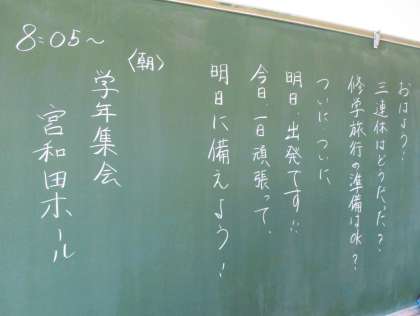 おはよう!
三連休はどうだった?
修学旅行の準備はOK?
ついに ついに
明日、出発です!!
今日、一日頑張って、
明日に備えよう!
〈朝〉
8:05〜
学年集会
宮和田ホール